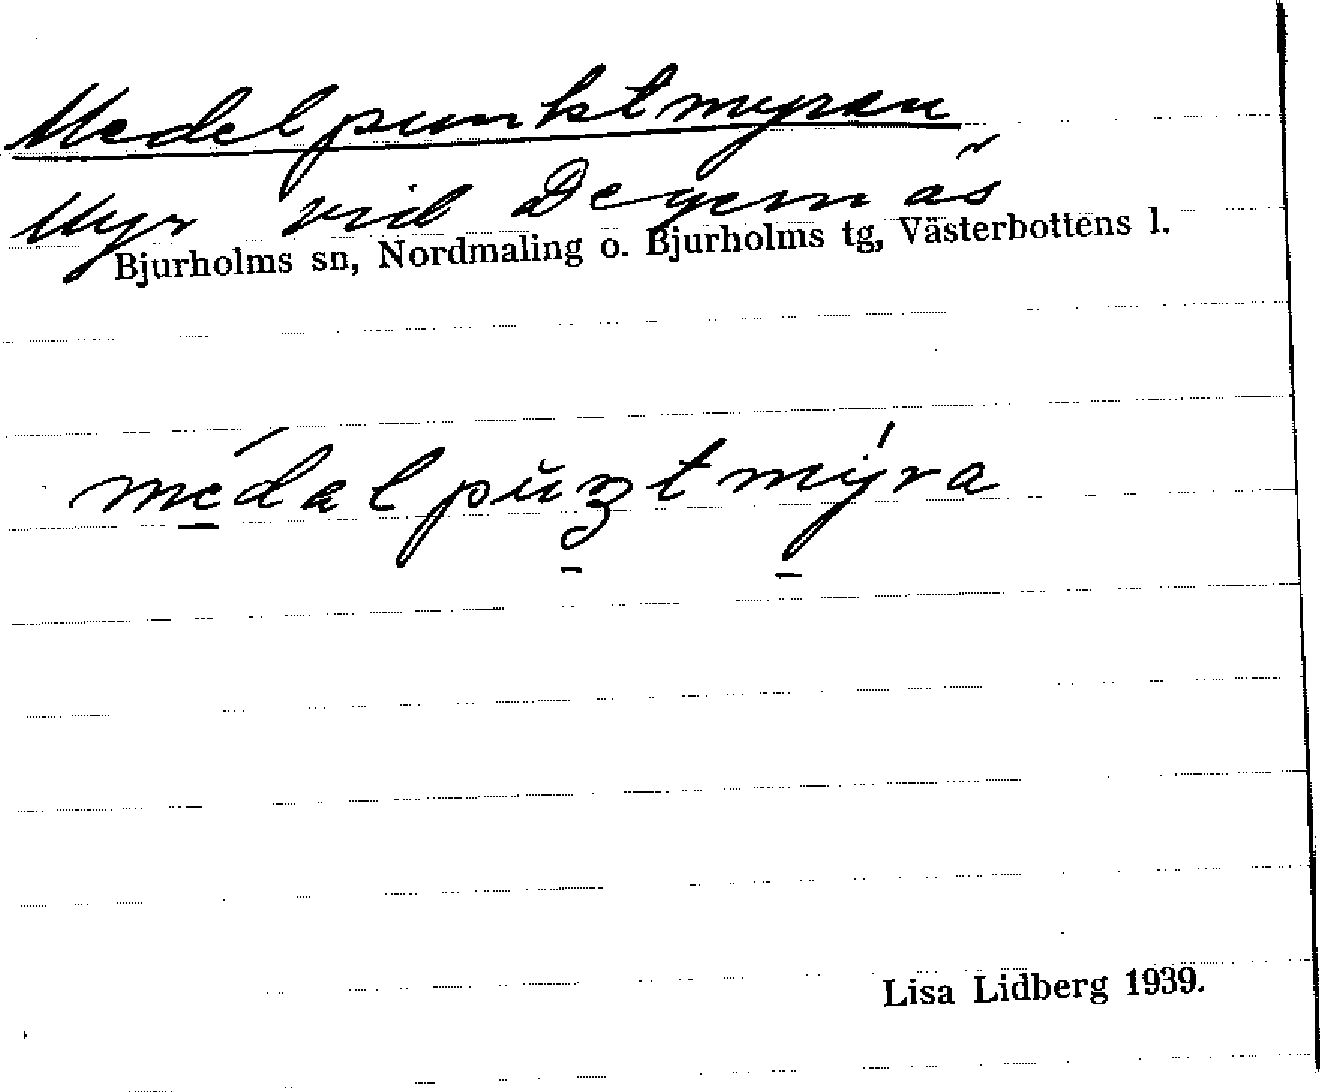 Medelpunktmyran
Myr vid Degernäs
Bjurholms sn, Nordmaling o. Bjurholms tg, Västerbottens l.
Lisa Lidberg 1939.